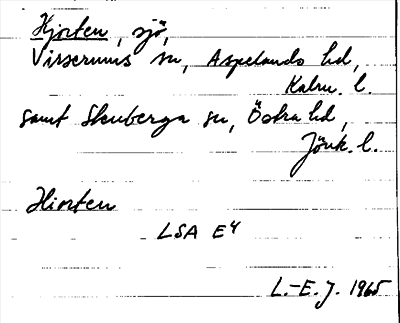 Hjorten, sjö,
Virserums sn, Aspelands hd,
Kalm. l.
samt Skuberga sn, Östra hd,
Jönk. l.
Hiorten
LSA E4
L.-E. J. 1965